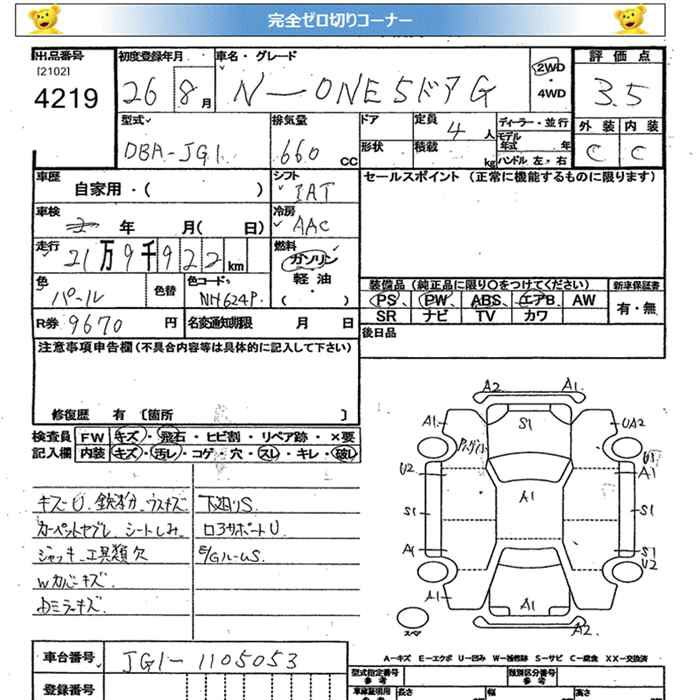 完全ゼロ切りコーナー
出品番号 初度登録年月 車名・グレード 評価点
[2102]
4219 26 8月 N-ONE 5ドア G 2WD ・ 4WD 3.5
型式 排気量 ドア 定員 4人 ディーラー・並行 外装 内装
DBA-JG1 660 CC 形状 積載 kg モデル年式 年 C C
ハンドル 左・右
車歴 自家用・( ) シフト IAT セールスポイント (正常に機能するものに限ります)
車検 年 月( 日) 冷房 AAC
走行 21万9千922km 燃料 ガソリン 軽油 ・( )
色 パール 色替 色コード NH624P 装備品(純正品に限り○をつけてください) 新車保証書
PS PW ABS エアB AW 有・無
SR ナビ TV カワ
R券 9670円 名変通知期限 月 日 後日品
注意事項申告欄(不具合内容等は具体的に記入して下さい)
修復歴 有 [箇所 ]
検査員 FW キズ・飛石・ヒビ割・リペア跡・×要
記入欄 内装 キズ・汚レ・コゲ・穴・スレ・キレ・破レ
キズU. 鉄粉. ウスキズ 下廻りS
カーペットヤブレ シートしみ. ロアサポートU
ジャッキ. 工具類欠 E/GルームS
Wカバーキズ
Dミラーキズ.
A2 A1
A1 S1 UA2
U2 U1 A1
S1 A1 S1
A1 S1 U2
A1 A1 A
スペア A2
車台番号 JG1-1105053
A-キズ E-エクボ U-凹み W-補修跡 S-サビ C-腐食 XX-交換済
登録番号 型式指定番号 参考 類別区分番号 参考
長さ 幅 高さ